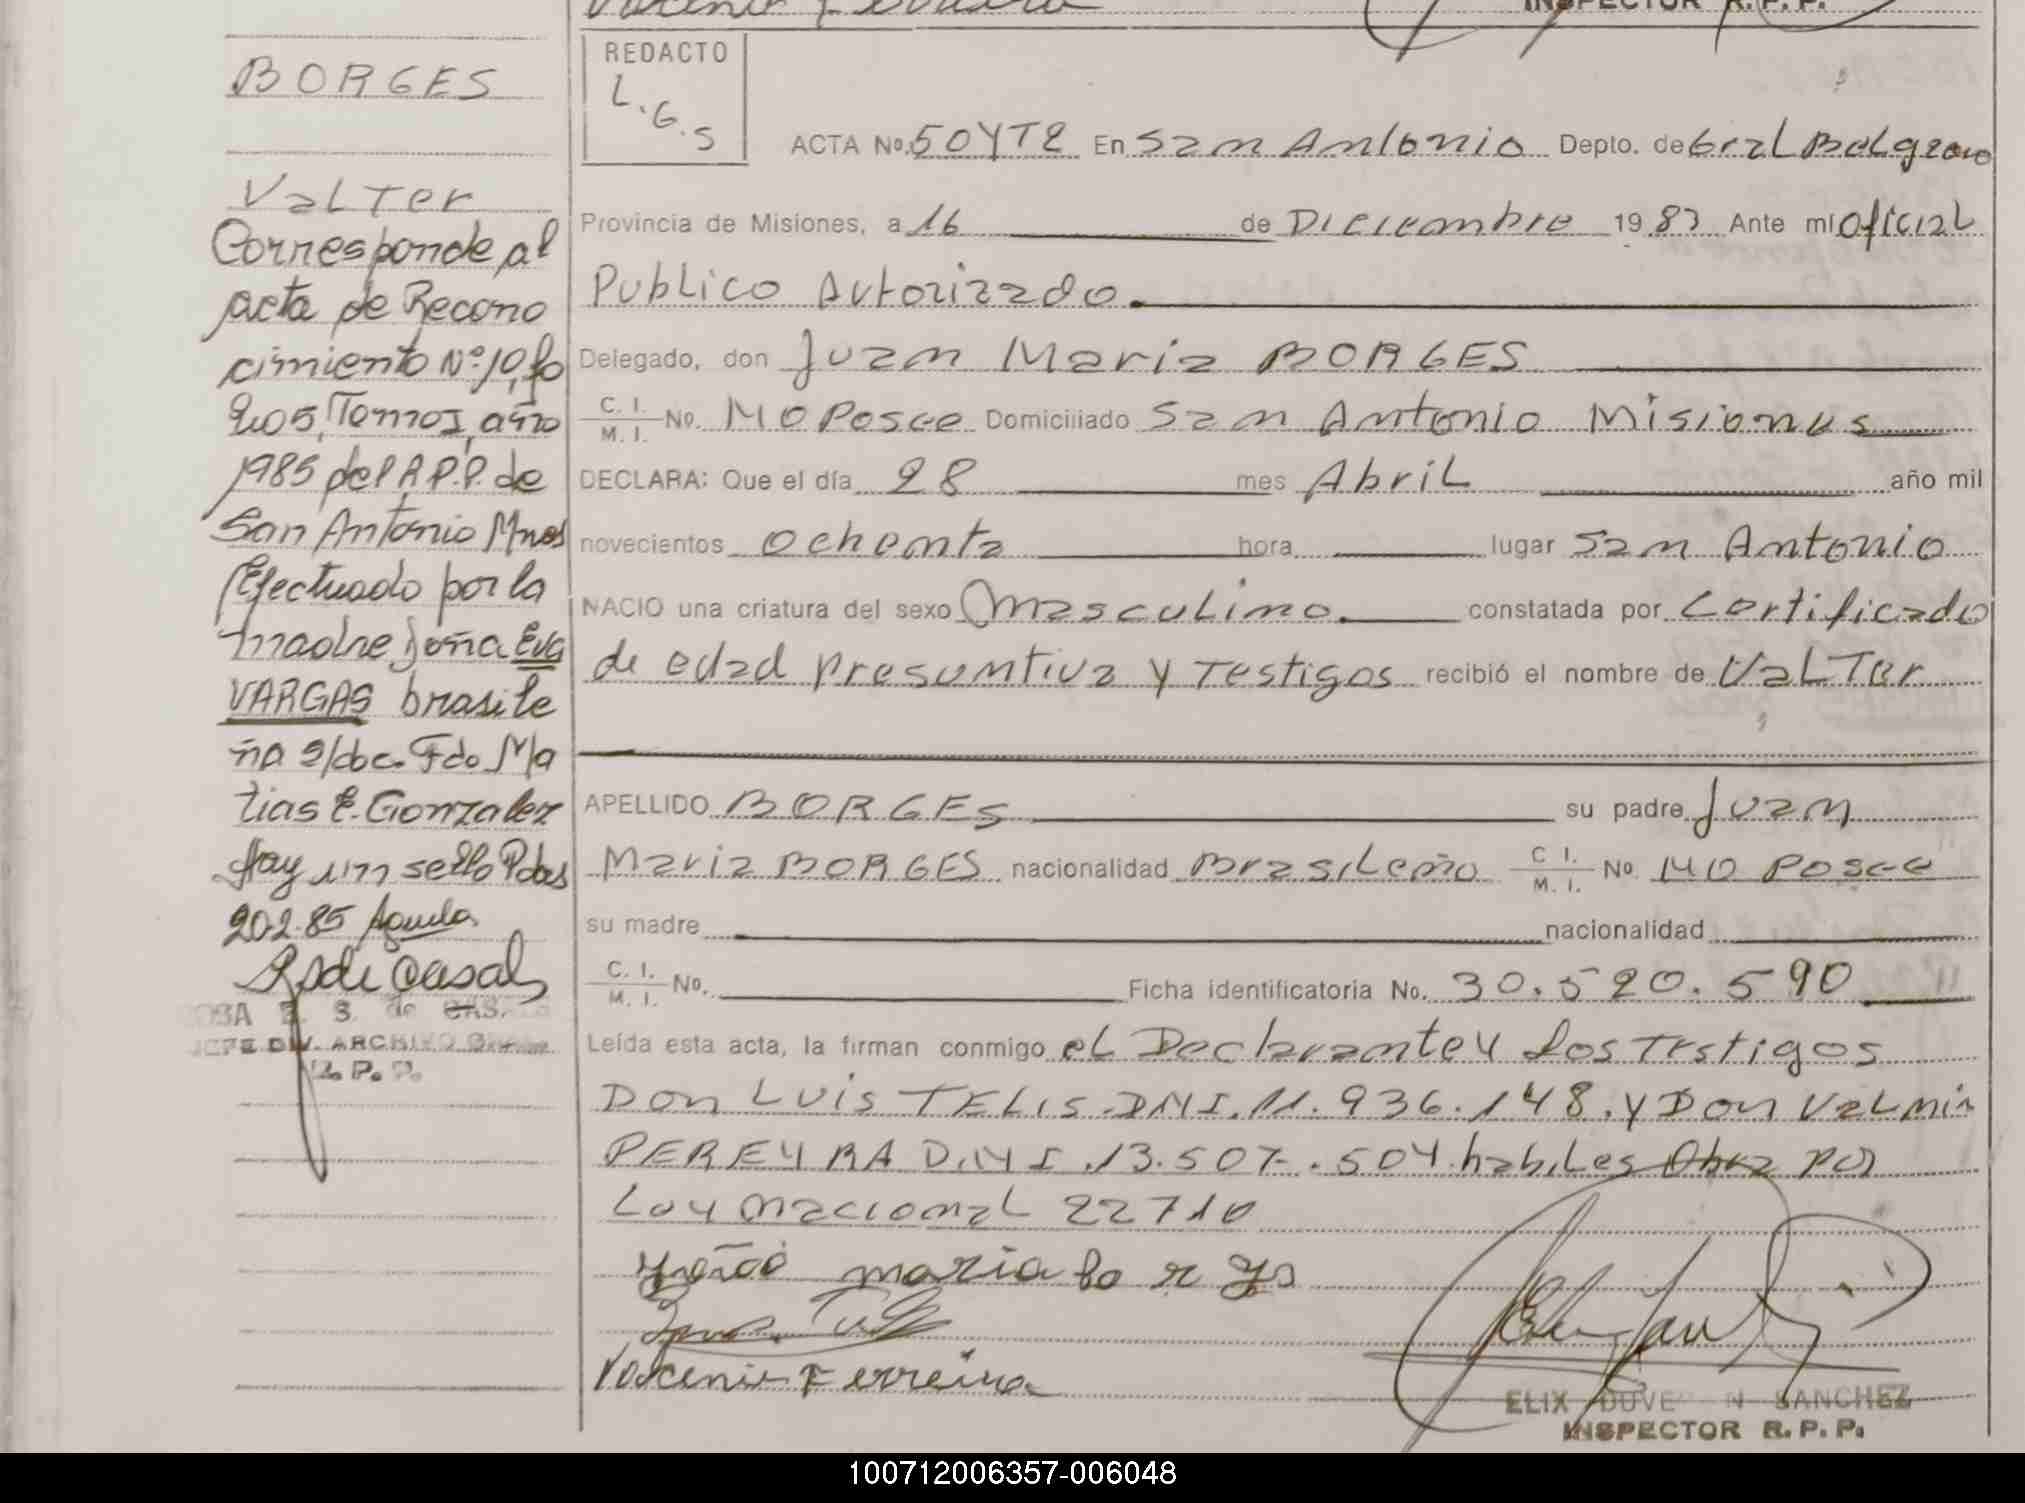 INSPECTOR R. P. P.
BORGES
Valter
Corresponde al
acta de Recono
cimiento Nº 10, fo
205, Tomo I, año
1985 del R.P.P. de
San Antonio Mnes
Efectuado por la
madre doña Eva
VARGAS brasile
ña s/doc. Fdo Ma
tias E. Gonzalez
Hay un sello Pdas
20.2.85
R S de Casal
S. de CAS
JEFE DIV. ARCHIVO
R. P. P.
REDACTO
L.G.S
ACTA No. 504T2 En San Antonio Depto. de Gral Belgrano
Provincia de Misiones, a 16 de Diciembre 1983 Ante mi Oficial
Publico Autorizado.
Delegado, don Juan Maria BORGES
C. I. M. I. No. NO Posee Domiciliado San Antonio Misiones
DECLARA: Que el día 28 mes Abril año mil
novecientos ochenta hora lugar San Antonio
NACIO una criatura del sexo masculino. constatada por Certificado
de edad presuntiva y Testigos recibió el nombre de Valter
APELLIDO BORGES su padre Juan
Maria BORGES nacionalidad Brasileño C I. M. I. No. NO Posee
su madre nacionalidad
C. I. M. I. No. Ficha identificatoria No. 30.520.590
Leída esta acta, la firman conmigo el Declarante y los Testigos
Don Luis TELIS.DNI.11.936.148.y Don Valmir
PEREYRA D.N.I.13.507.504.habiles Obra por
Ley nacional 22710
maria borges
Ferreira
ELIX DUVE N SANCHEZ
INSPECTOR R. P. P.
100712006357-006048